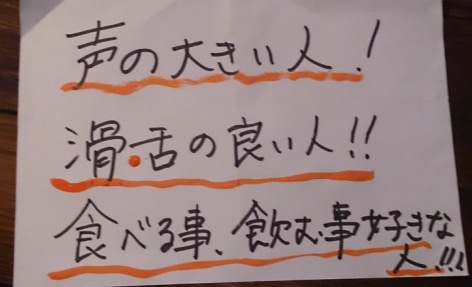 声の大きい人!
滑舌の良い人!!
食べる事、飲む事好きな
人!!!